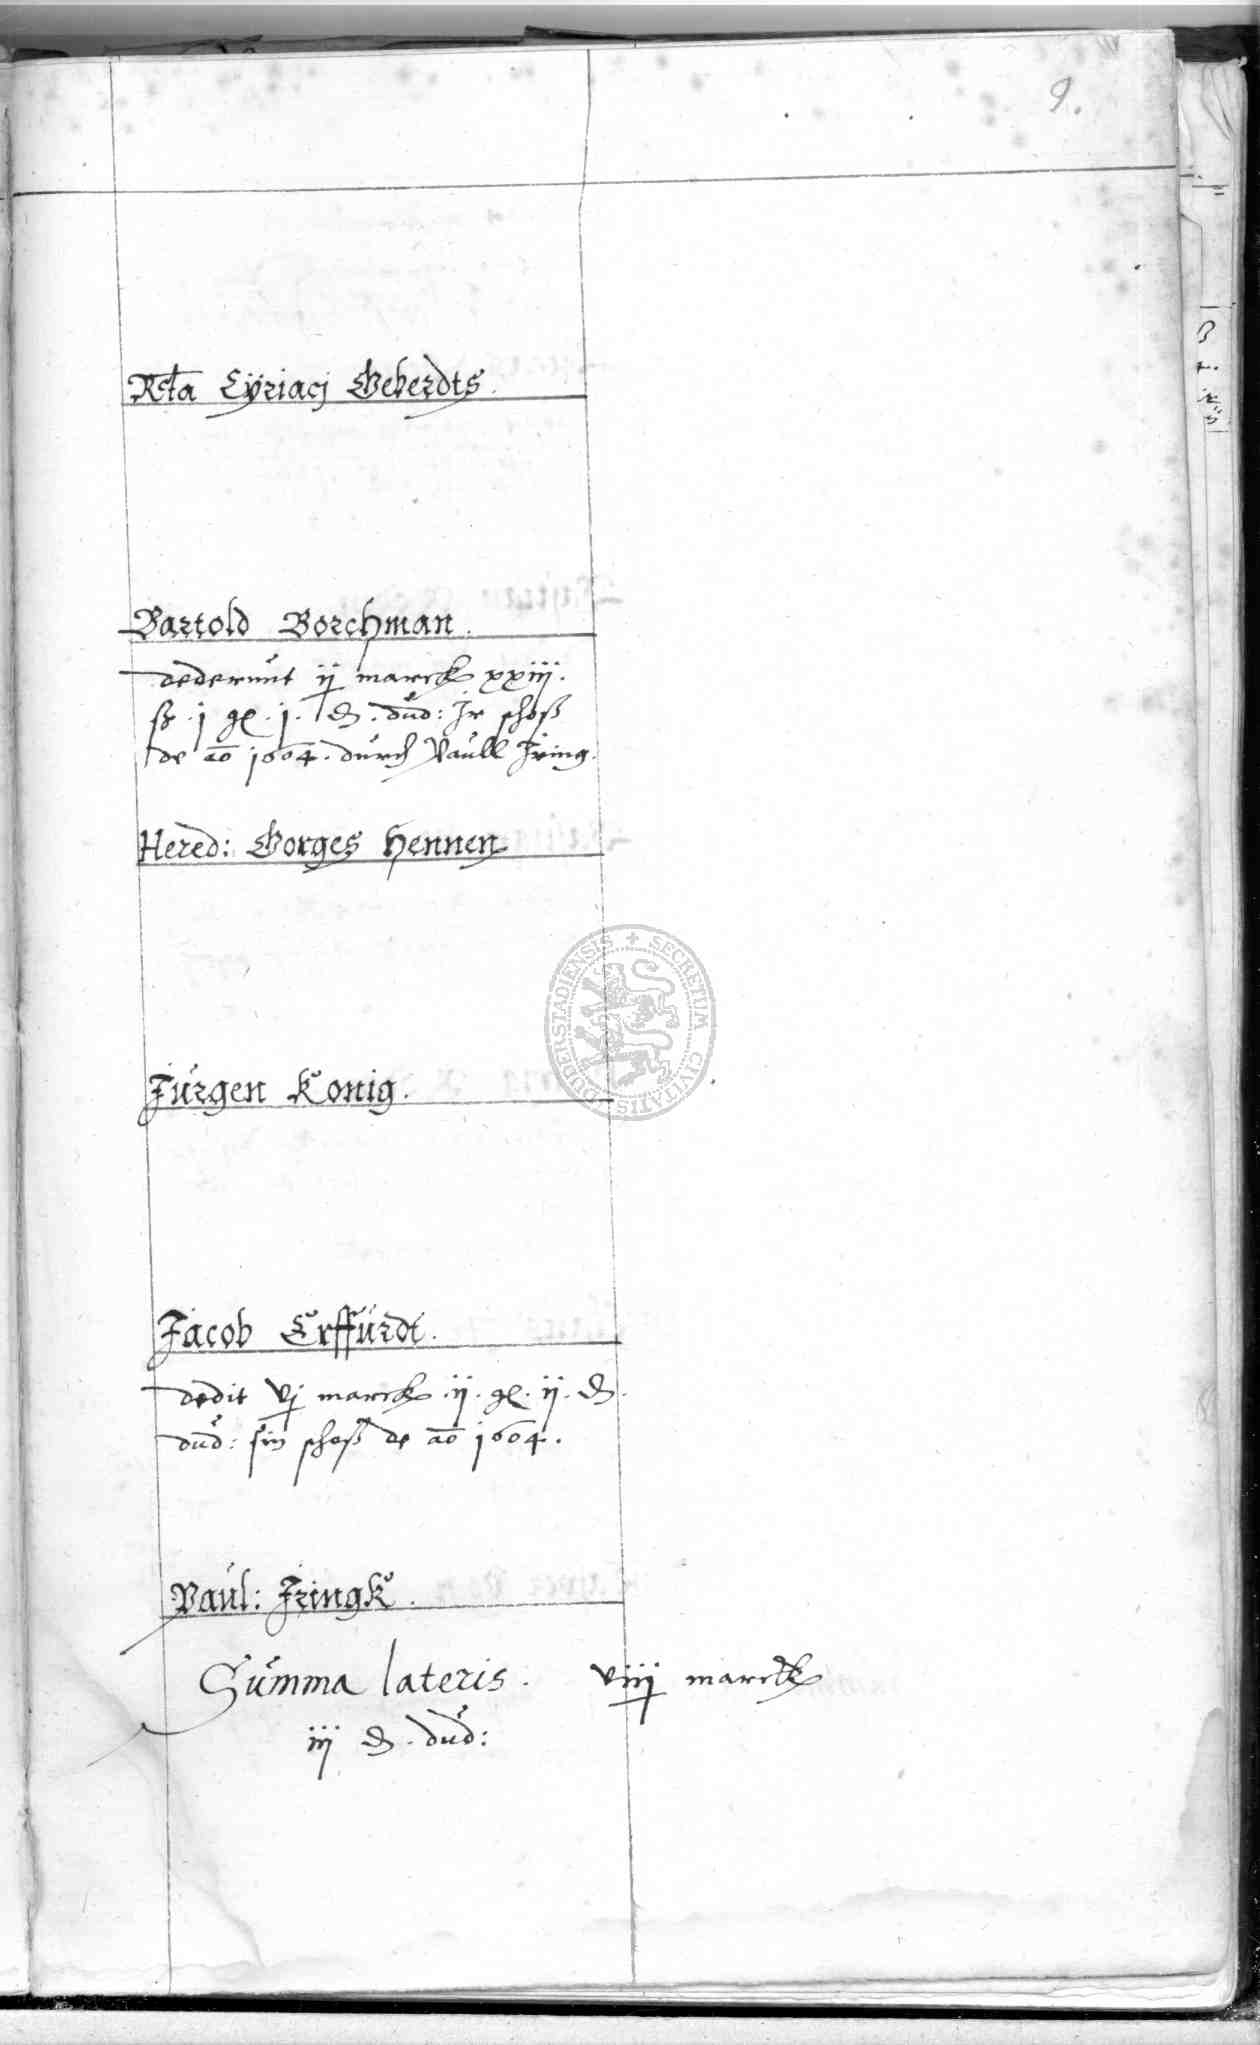 9.
Rcta Cÿriacj Geberdts.
Bartold Borchman.
dederunt ij marck xxiij.
ß. j gl. j. ₰. dud: Ir schoß
de ao 1604. durch Paull Iring.
Hered: Gorges Hennen
Jurgen Konig.
DUDERSTADIENSIS + SECRETUM CIVITATIS
Jacob Erffurdt.
dedit vj marck. ij. gl. ij. ₰.
dud: sin schoß de ao 1604.
Paul: Iringk.
Summa lateris. viij marck
iij ₰. dud: